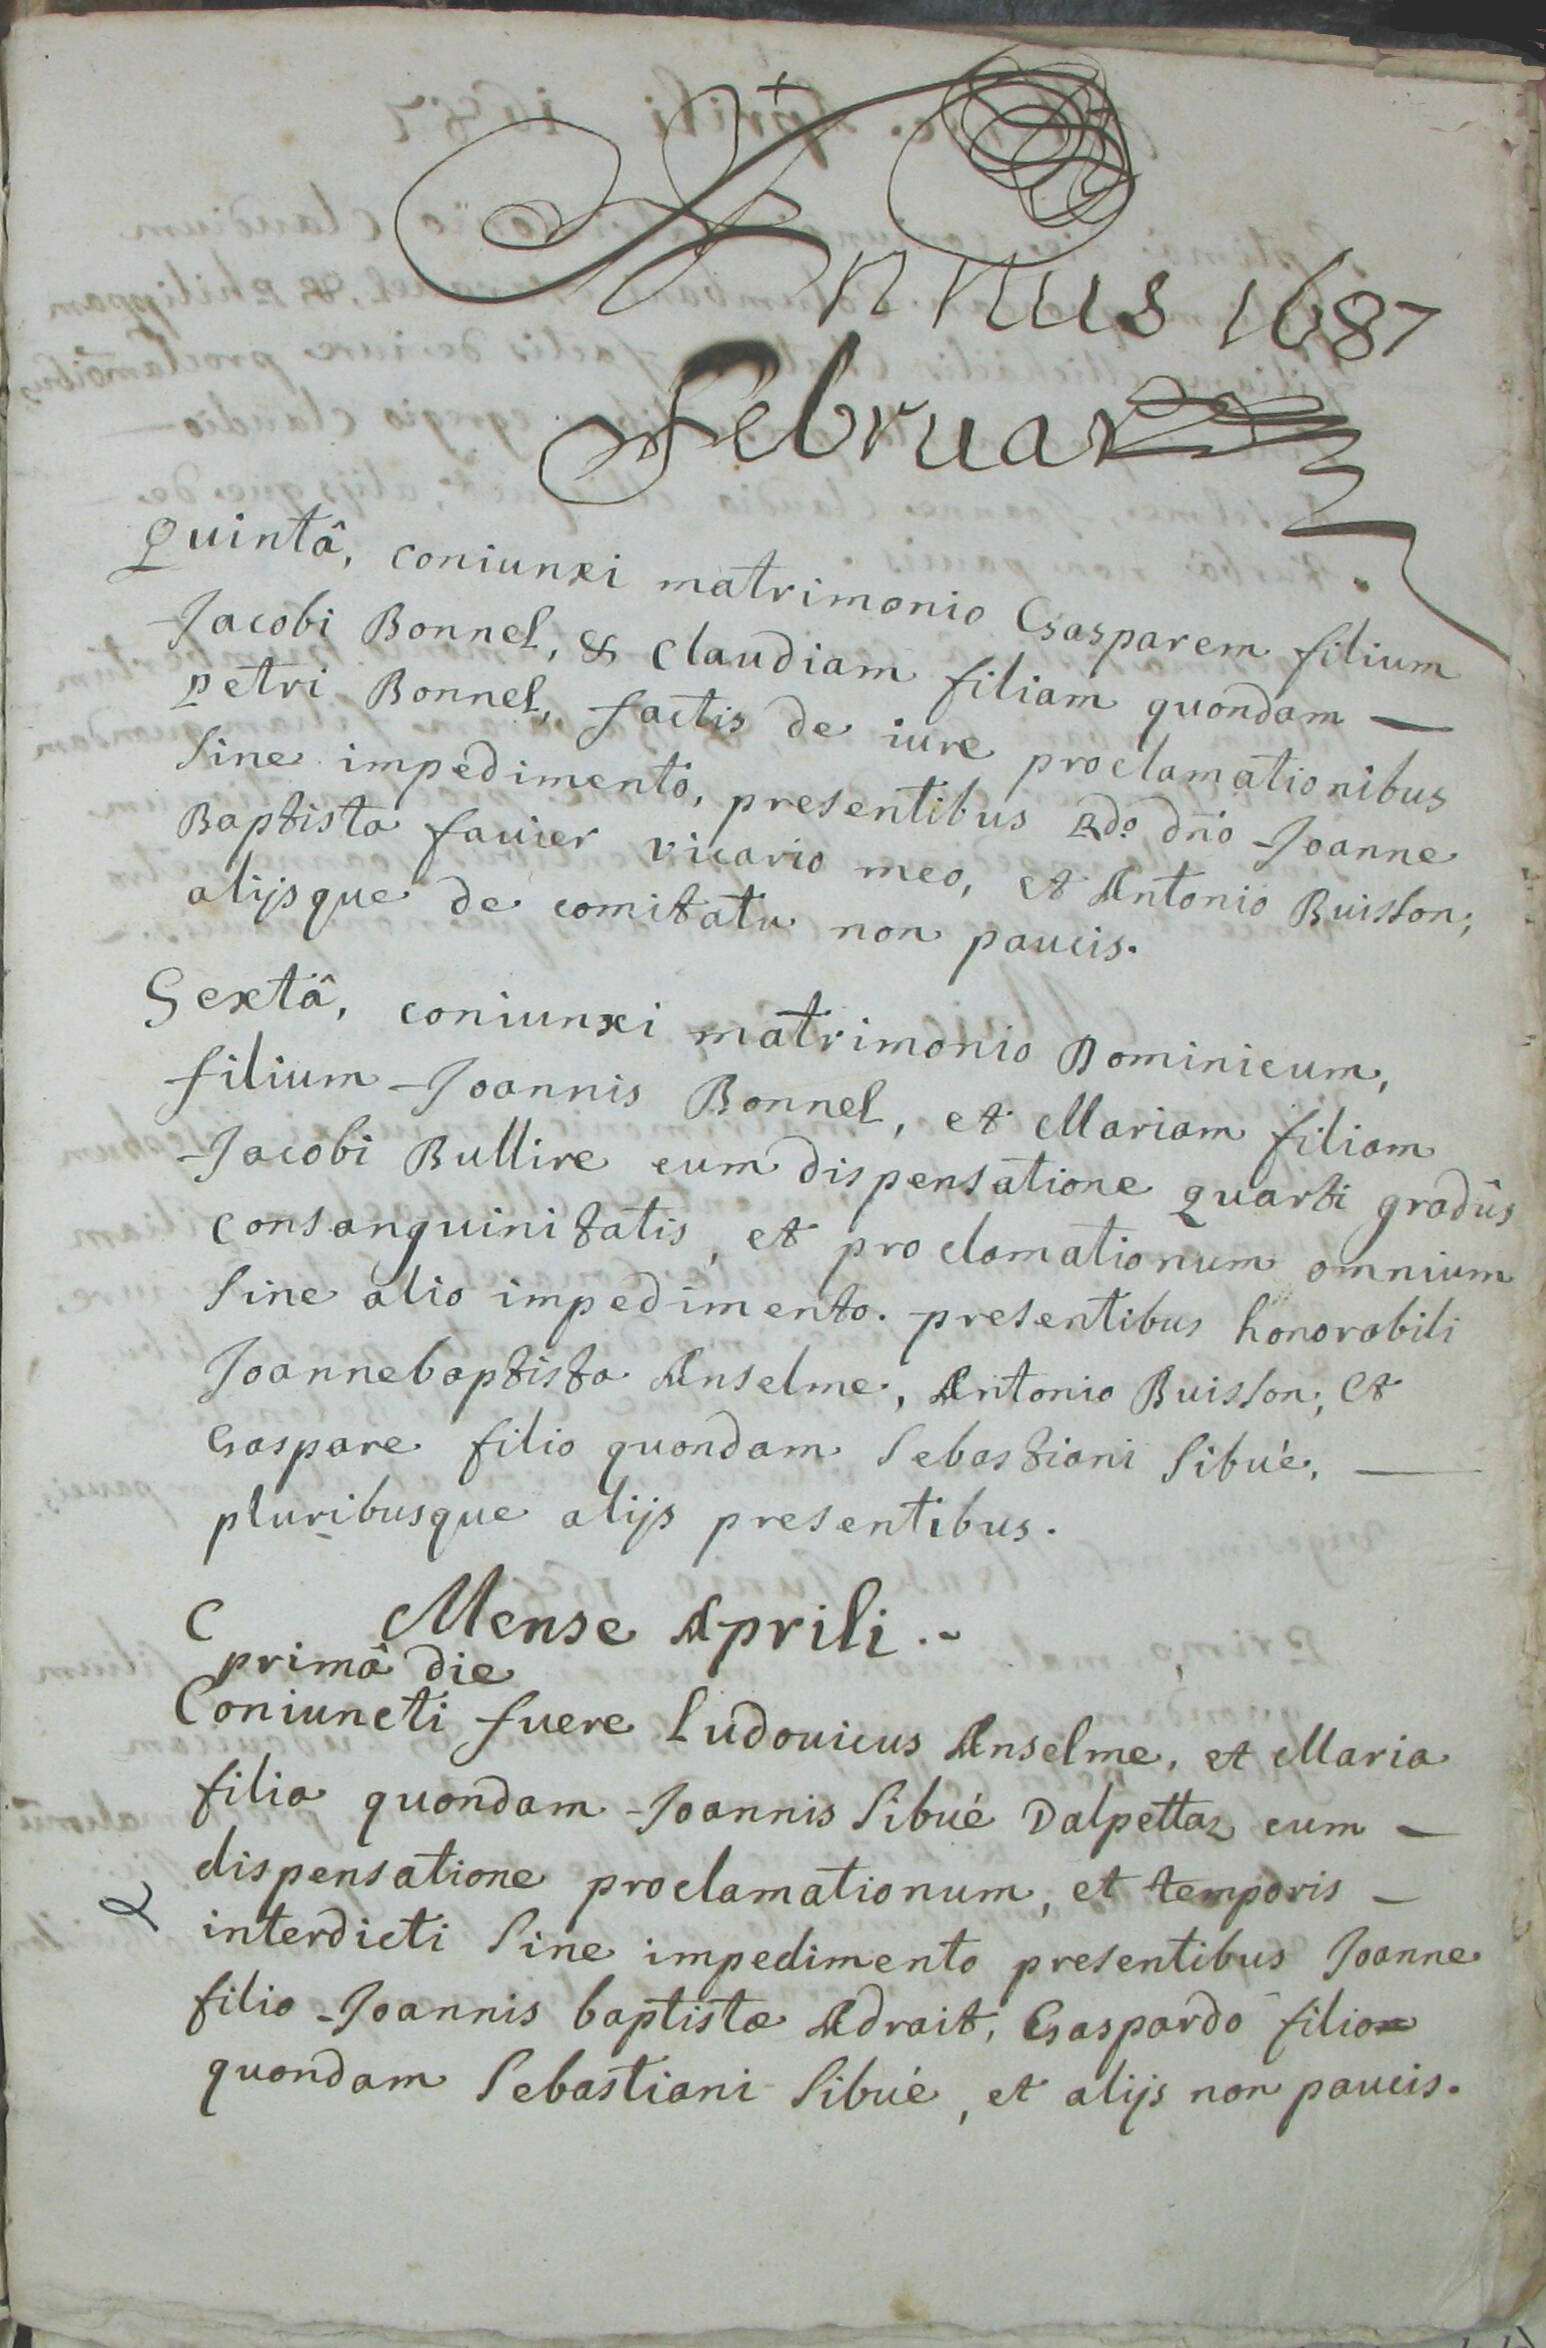 Annus 1687
Februar
Quintâ, coniunxi matrimonio Gasparem filium
Jacobi Bonnel, & Claudiam filiam quondam —
petri Bonnel, factis de iure proclamationibus
sine impedimento, presentibus Rdo dño Joanne
Baptista fauier vicario meo, et Antonio Buisson,
alijsque de comitatu non paucis.
Sextâ, coniunxi matrimonio Dominicum,
filium Joannis Bonnel, et Mariam filiam
Jacobi Bullire cum dispensatione quarti gradûs
consanguinitatis, et proclamationum omnium
sine alio impedimento. presentibus honorabili
Joannebaptista Anselme, Antonio Buisson, et
Gaspare filio quondam Sebastiani Sibué, —
pluribusque alijs presentibus.
Mense Aprili .~
primâ die
Coniuncti fuere Ludouicus Anselme, et Maria
filia quondam Joannis Sibué Dalpettaz cum —
dispensatione proclamationum, et temporis —
interdicti sine impedimento presentibus Joanne
filio Joannis baptistæ Adrait, Gaspardo filio
quondam Sebastiani Sibué, et alijs non paucis.